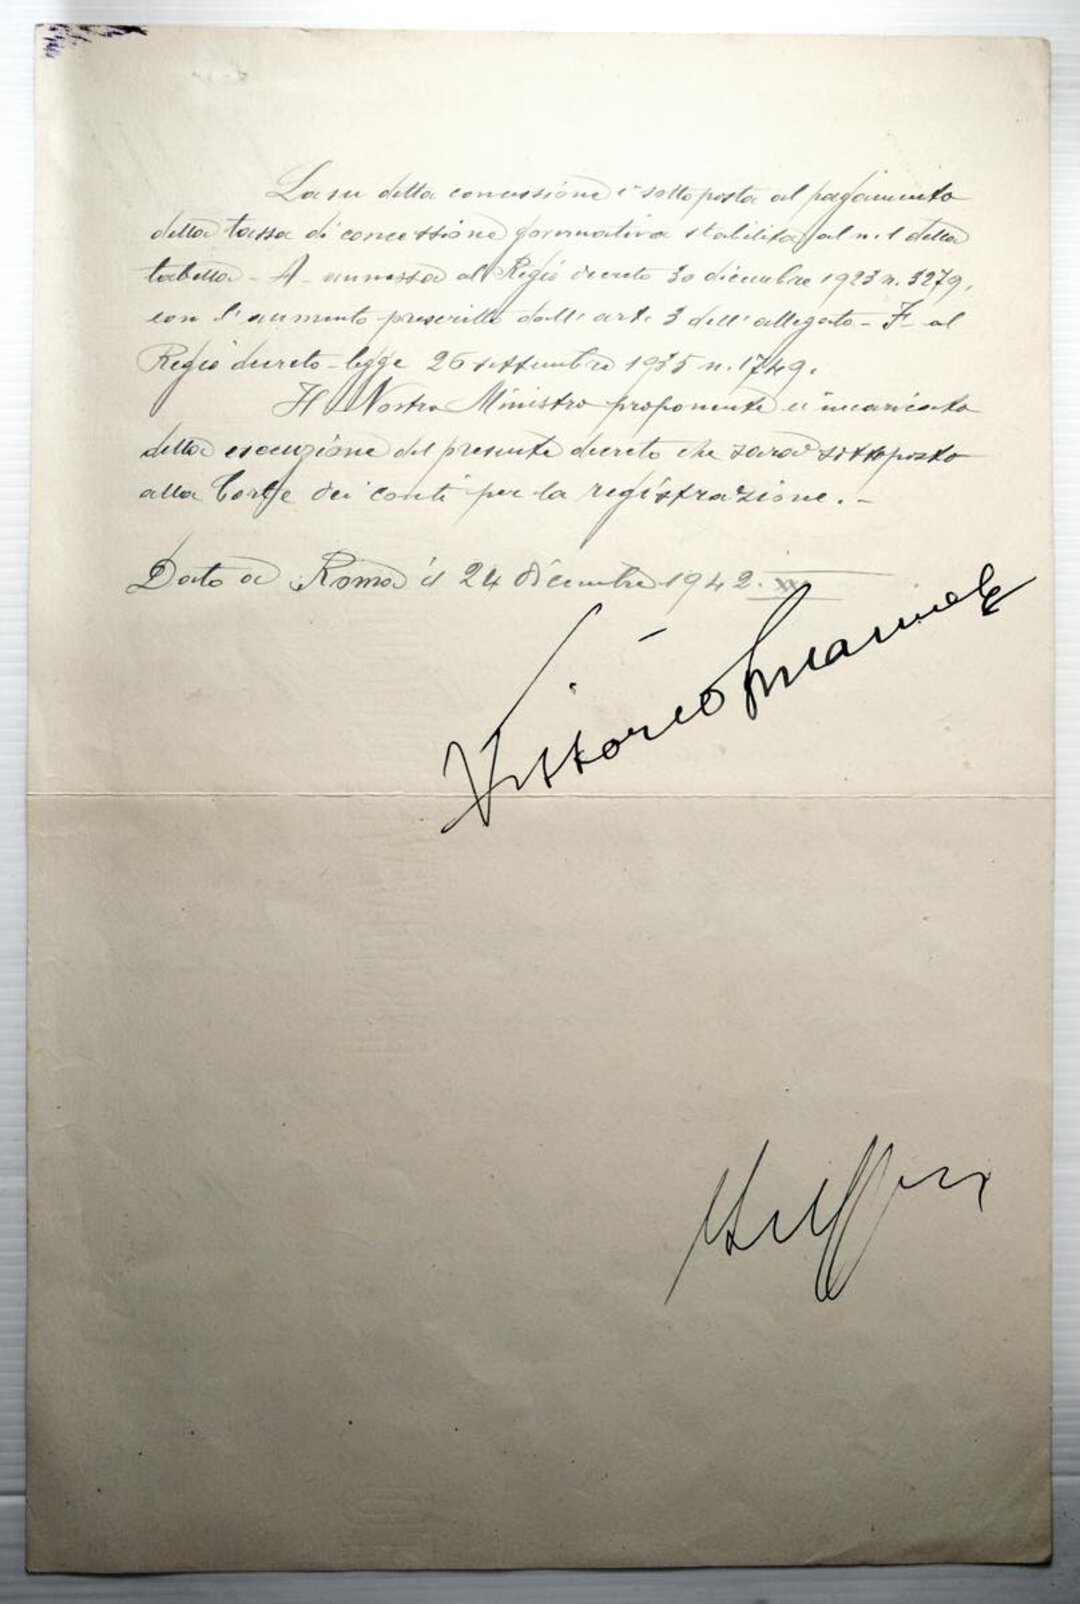 La su detta concessione è sottoposta al pagamento
della tassa di concessione governativa stabilita al n. 1 della
tabella - A - annessa al Regio decreto 30 dicembre 1923 n. 3279,
con l'aumento prescritto dall'art. 3 dell'allegato - F - al
Regio decreto-legge 26 settembre 1935 n. 1749.
Il Nostro Ministro proponente è incaricato
della esecuzione del presente decreto che sarà sottoposto
alla Corte dei conti per la registrazione. -
Dato a Roma il 24 dicembre 1942.
Vittorio Emanuele